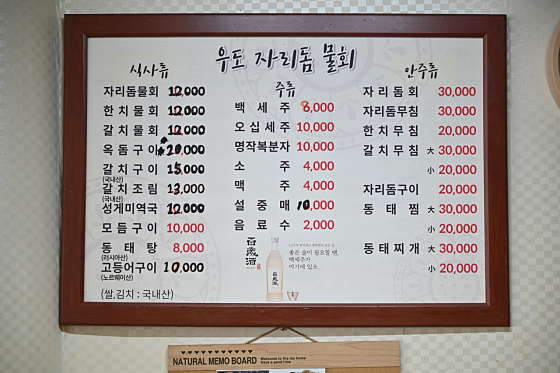 우도 자리돔 물회
식사류
자리돔물회 12,000
한치물회 12,000
갈치물회 12,000
옥돔구이 20,000
갈치구이 15,000
(국내산)
갈치조림 13,000
(국내산)
성게미역국 12,000
모듬구이 10,000
동태탕 8,000
(러시아산)
고등어구이 10,000
(노르웨이산)
(쌀,김치 : 국내산)
주류
백세주 8,000
오십세주 10,000
명작복분자 10,000
소주 4,000
맥주 4,000
설중매 10,000
음료수 2,000
百歲酒
좋은 술이 필요할 땐,
백세주가
여기에 있소.
안주류
자리돔회 30,000
자리돔무침 30,000
한치무침 20,000
갈치무침 大 30,000
小 20,000
자리돔구이 20,000
동태찜 大 30,000
小 20,000
동태찌개 大 30,000
小 20,000
NATURAL MEMO BOARD
Welcome to the my home
Have a good time